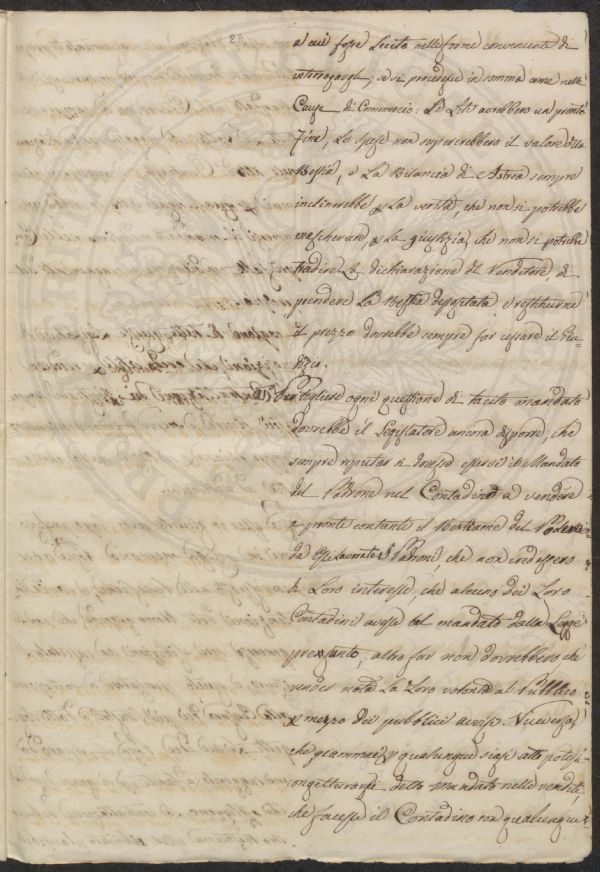 23
a cui fosse lecito nelle forme convenienti di
interrogargli; se si procedesse in somma come nelle
Cause di Commercio: Le Liti avrebbero un pronto
Fine, Le spese non supererebbero il valore della
Bestia, e La Bilancia di Astrea sempre
inclinerebbe p La verità, che non si potrebbe
mascherare, e p La giustizia, che non si potrebbe
tradire. La dichiarazione del Venditore, di
prendere La Bestia depositata, e restituirne
il prezzo dovrebbe sempre far cessare il Giu-
dizio.
Per togliere ogni questione di tacito mandato
dovrebbe il Legislatore ancora disporre, che
sempre reputar si dovesse esservi il Mandato
del Padrone nel Contadino a vendere
a pronti contanti il Bestiame del Podere
da Esso Lavorato. I Padroni, che non credessero
di Loro interesse, che alcuno dei Loro
Contadini avesse tal mandato dalla Legge
presunto, altro far non dovrebbero che
render nota La Loro volontà al Pubblico
p mezzo dei pubblici avvisi. Viceversa,
che giammai p qualunque siasi atto potesse
congetturarsi detto mandato nelle vendite,
che facesse il Contadino con qualunque